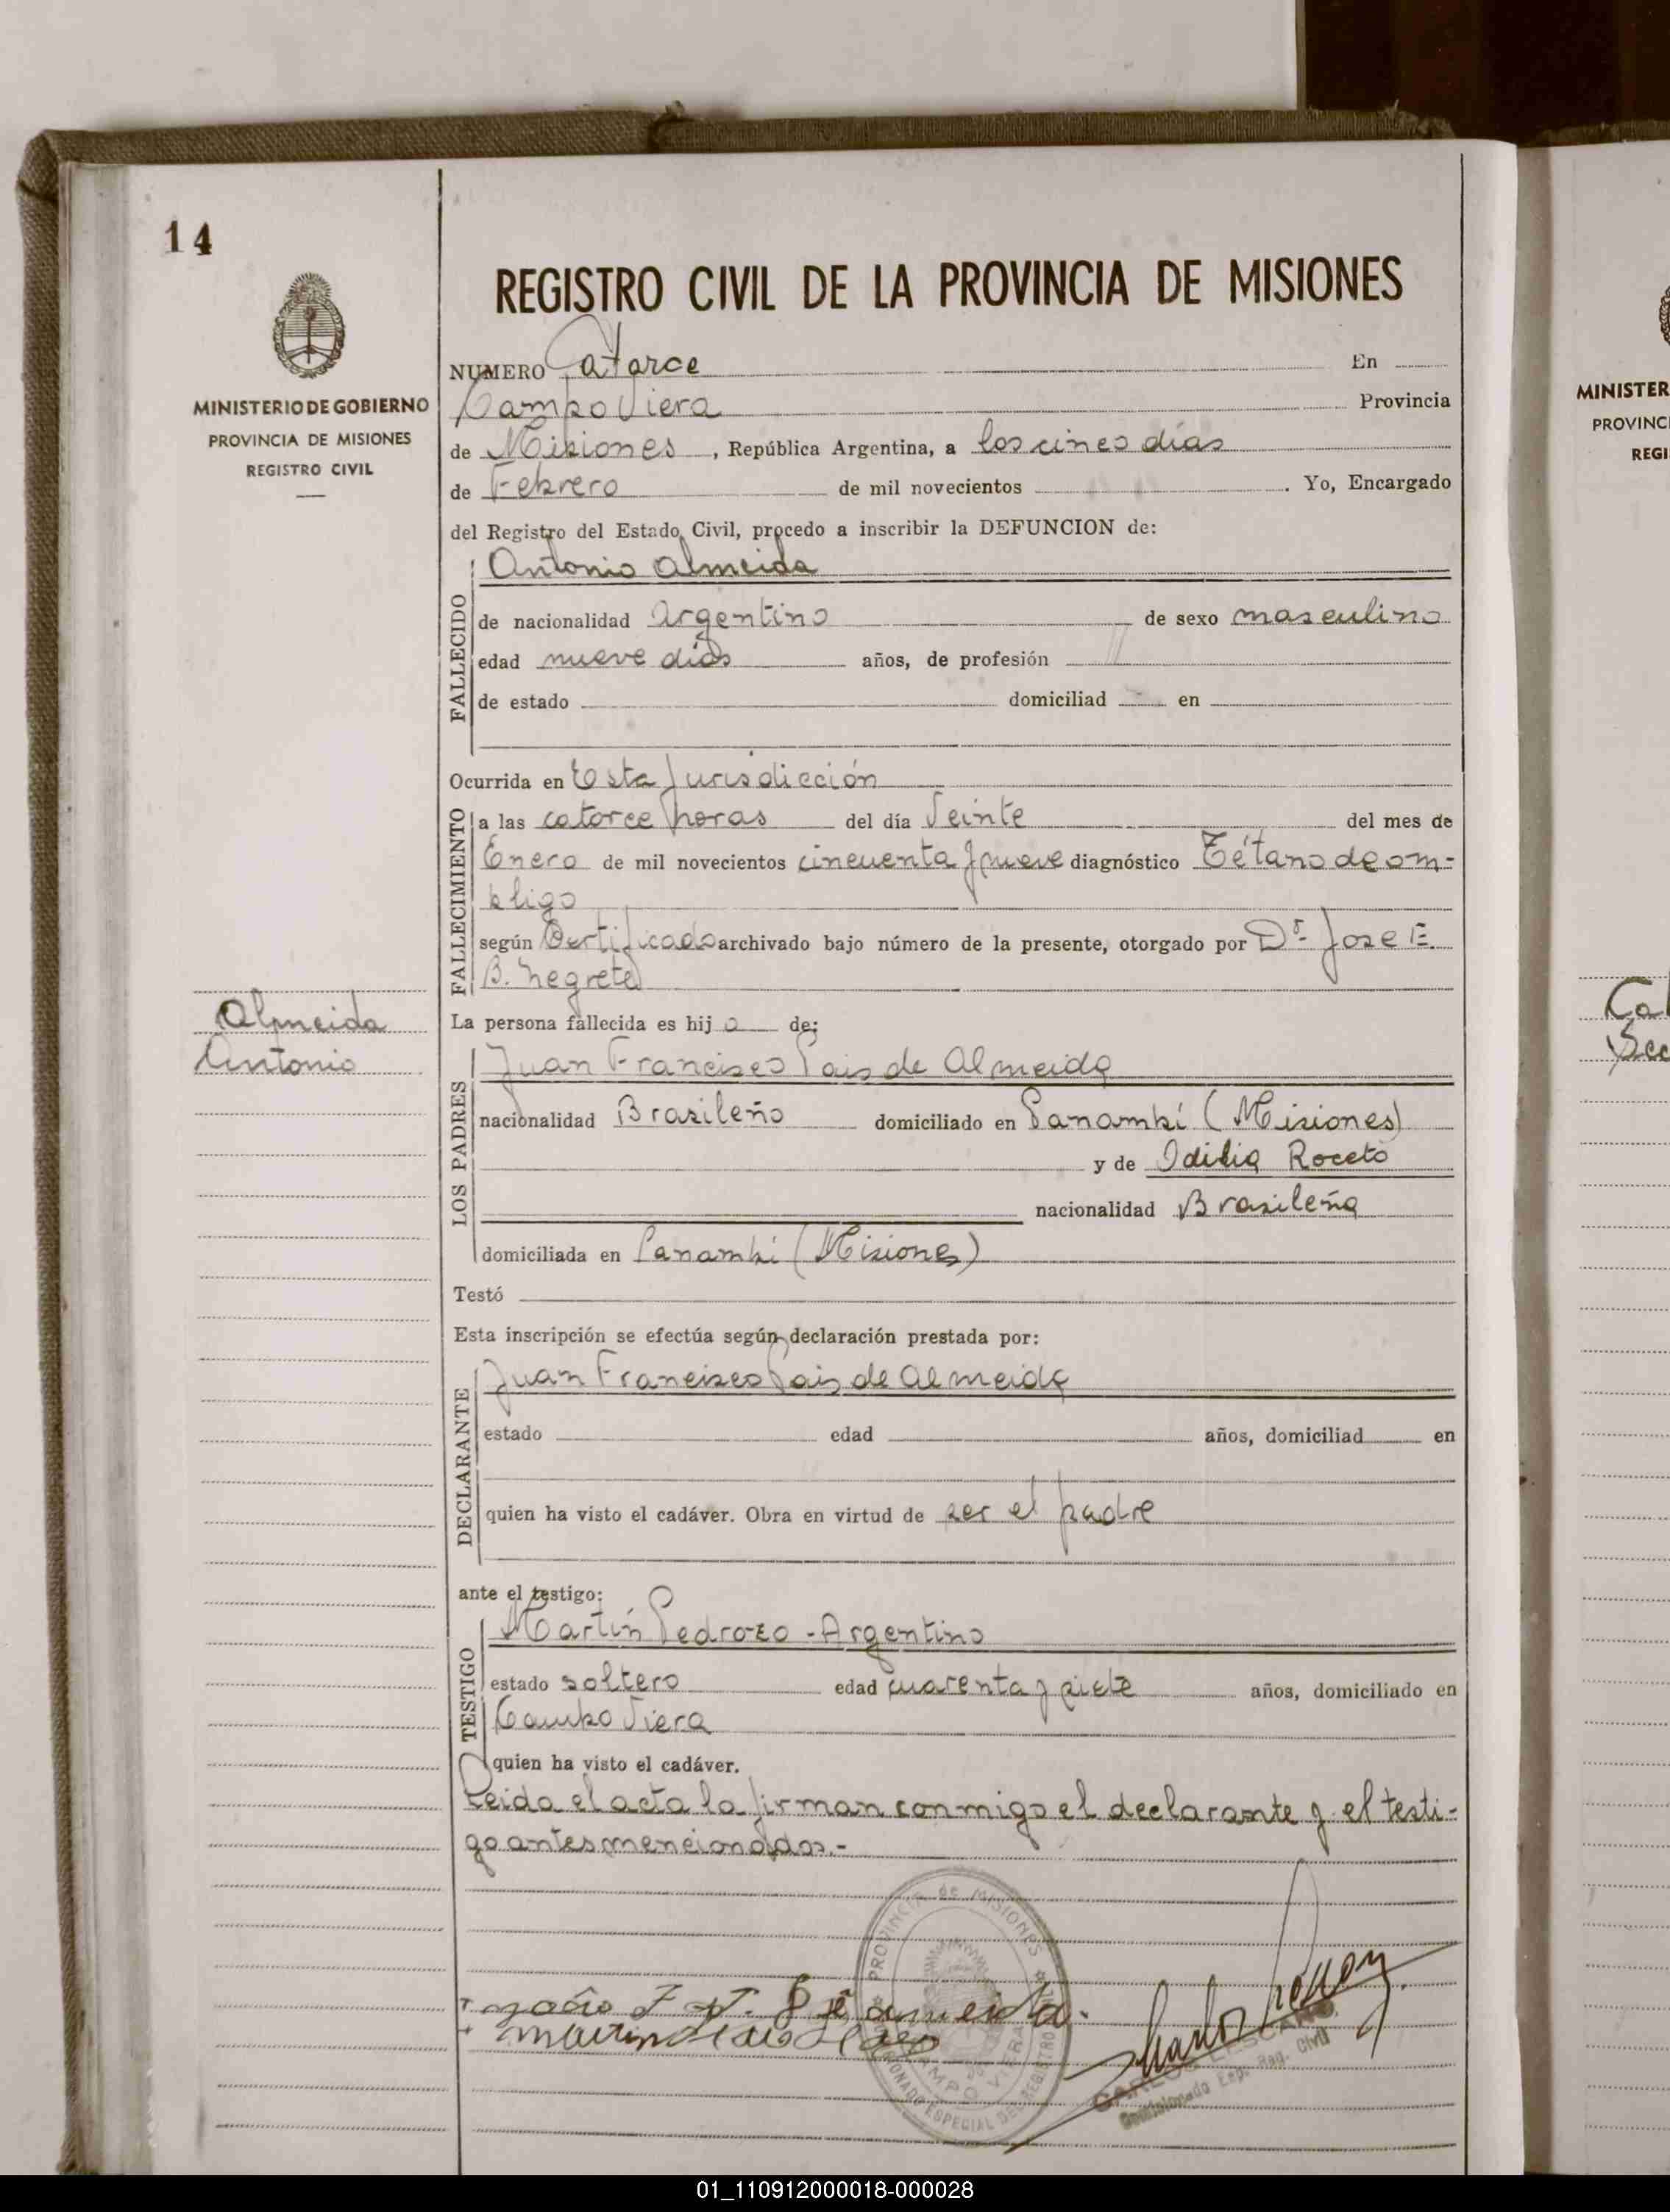 14
MINISTERIO DE GOBIERNO
PROVINCIA DE MISIONES
REGISTRO CIVIL
Almeida
Antonio
REGISTRO CIVIL DE LA PROVINCIA DE MISIONES
NUMERO Catorce En
Campo Viera Provincia
de Misiones, República Argentina, a los cinco días
de Febrero de mil novecientos . Yo, Encargado
del Registro del Estado Civil, procedo a inscribir la DEFUNCION de:
FALLECIDO
Antonio Almeida
de nacionalidad Argentino de sexo masculino
edad nueve días años, de profesión
de estado domiciliad en
Ocurrida en Esta Jurisdicción
FALLECIMIENTO
a las catorce horas del día Veinte del mes de
Enero de mil novecientos cincuenta y nueve diagnóstico Tétano de om-
bligo
según Certificado archivado bajo número de la presente, otorgado por Dr. Jose E.
B. Negrete
La persona fallecida es hijo de:
LOS PADRES
Juan Francisco Pais de Almeida
nacionalidad Brasileño domiciliado en Panambí (Misiones)
y de Idilia Roceto
nacionalidad Brasileña
domiciliada en Panambí (Misiones)
Testó
Esta inscripción se efectúa según declaración prestada por:
DECLARANTE
Juan Francisco Pais de Almeida
estado edad años, domiciliad en
quien ha visto el cadáver. Obra en virtud de ser el padre
ante el testigo:
TESTIGO
Martín Pedrozo - Argentino
estado soltero edad cuarenta y siete años, domiciliado en
Campo Viera
quien ha visto el cadáver.
Leida el acta la firman conmigo el declarante y el testi-
go antes mencionados.-
PROVINCIA de MISIONES
CAMPO VIERA
Reg. Civil
MINISTER
PROVINC
REGI
01_110912000018-000028